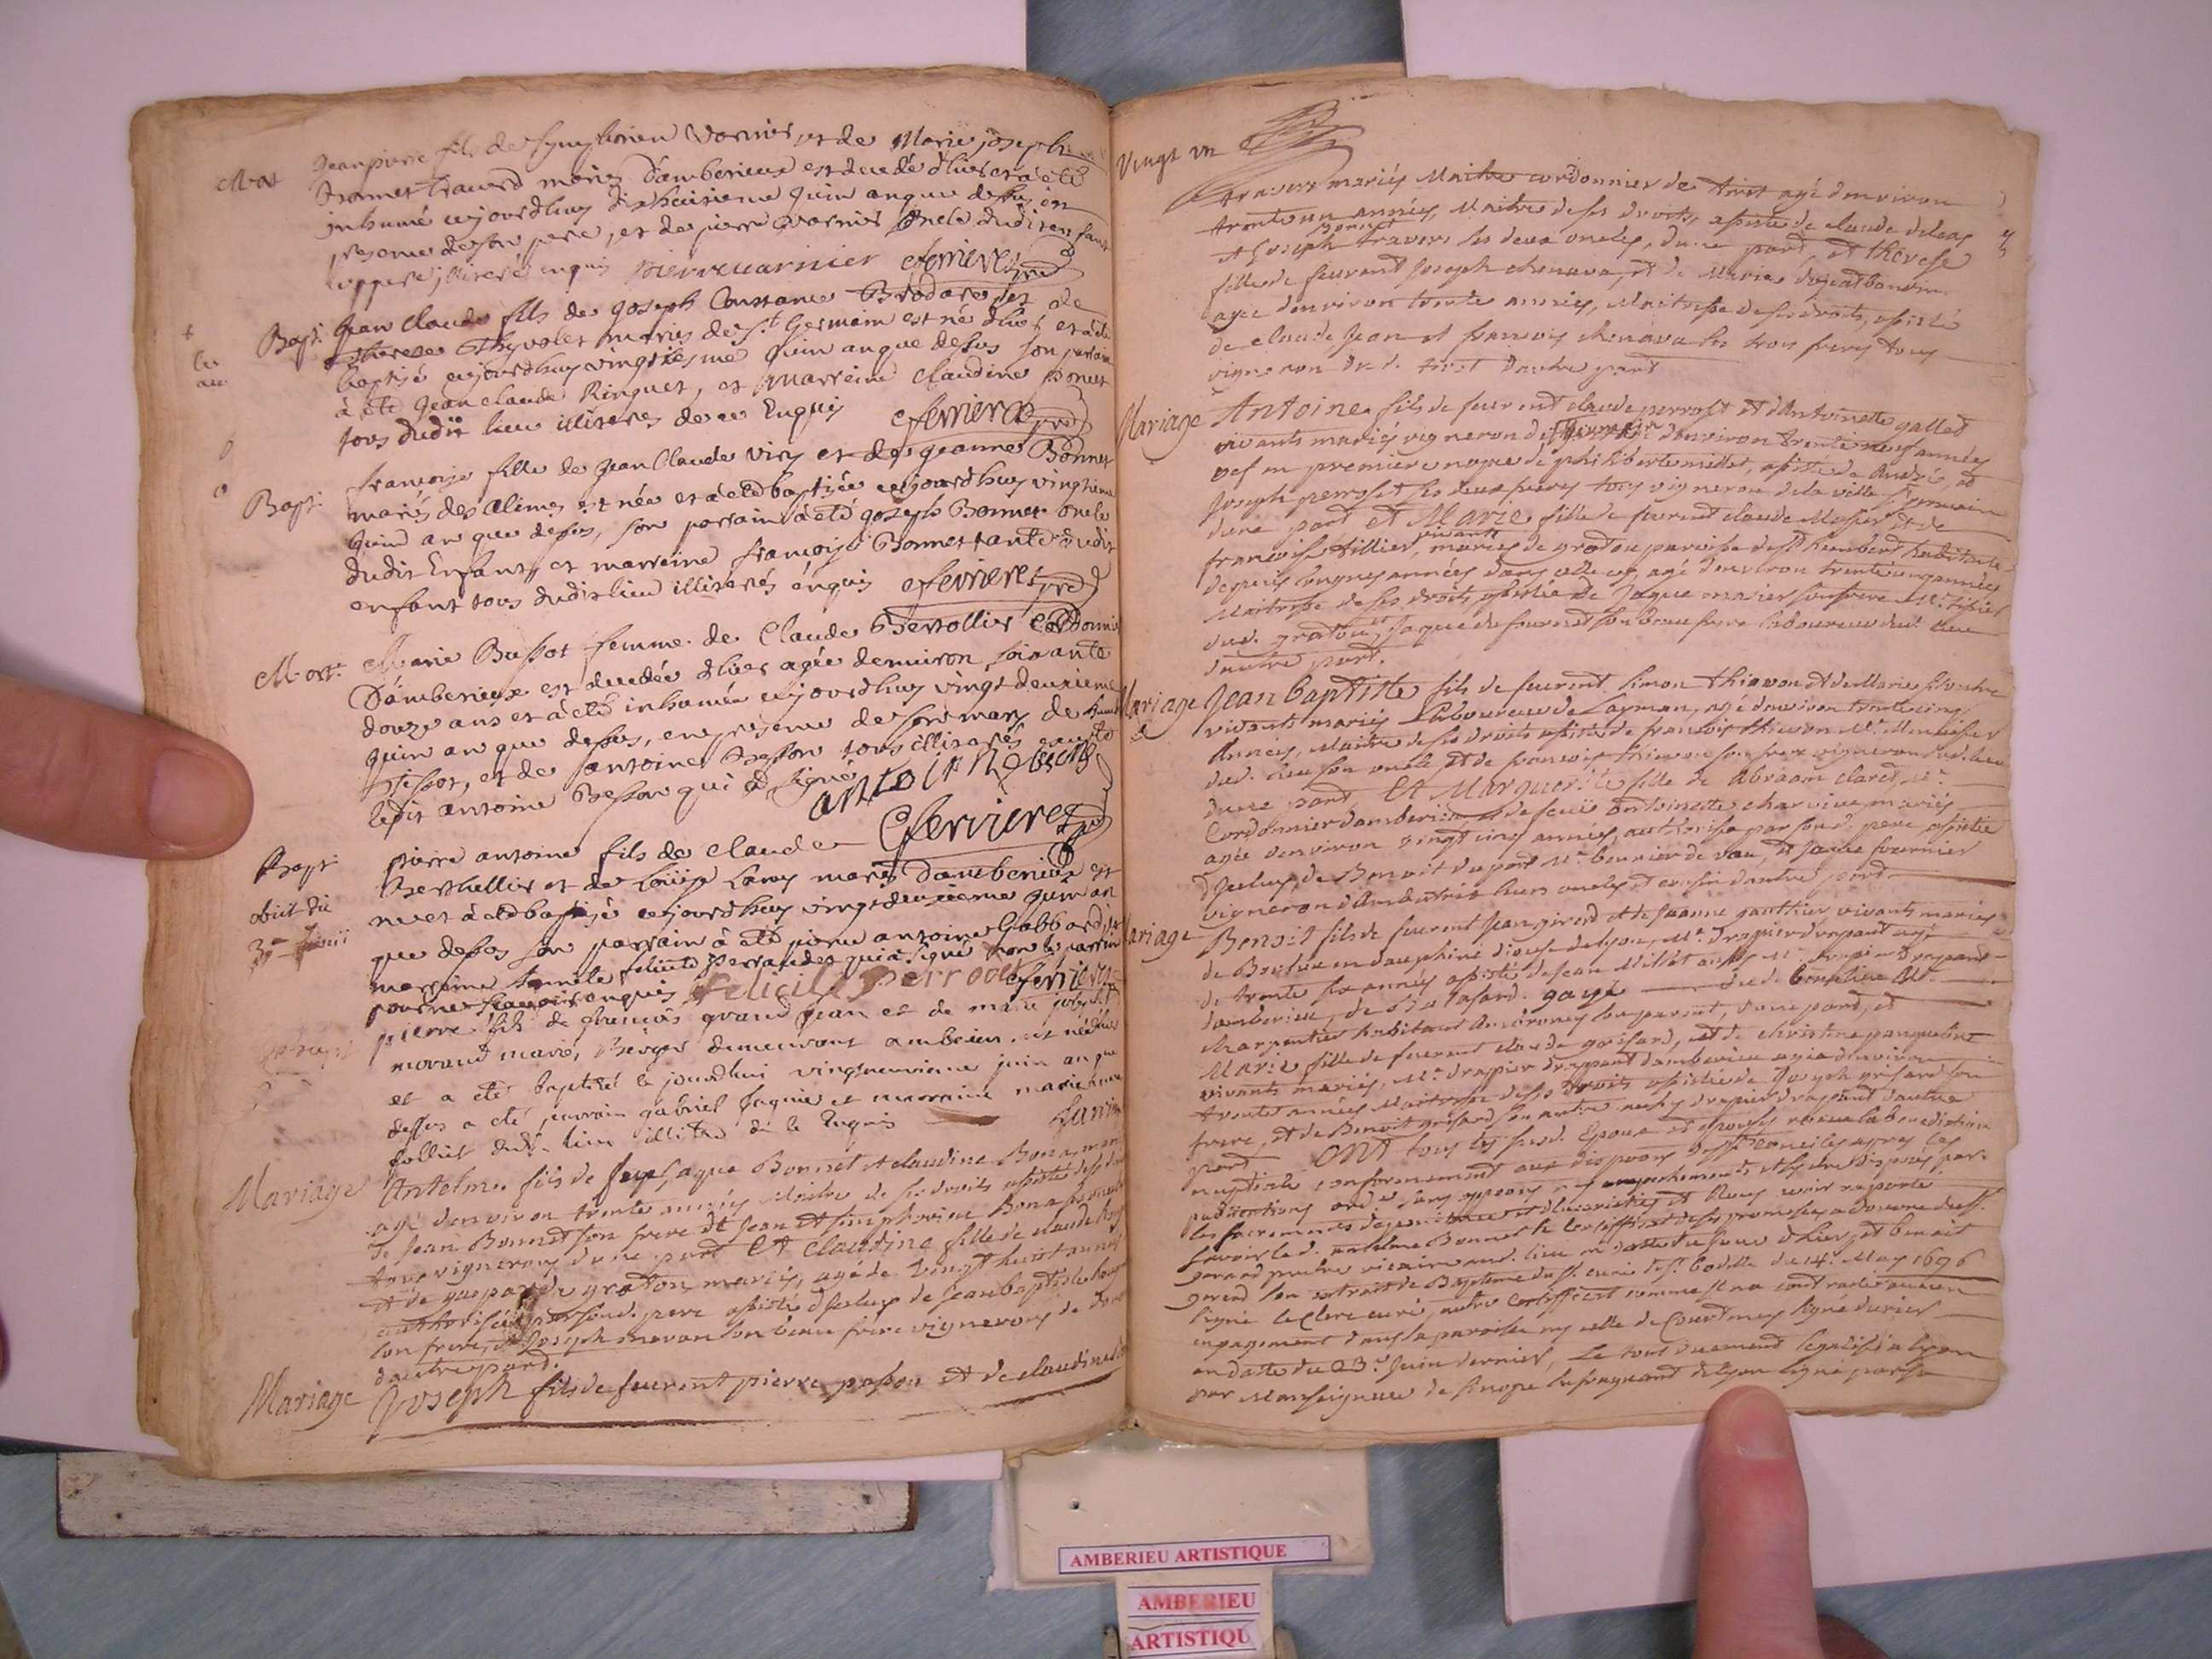 Mort
Jean pierre fils de Symphorien Varnier, et de Marie joseph
Bonnet travard mariés d'amberieux est decedé d'hier et a eté
inhumé aujourdhuy dixhuitieme juin an que dessus en
presence de son pere, et de pierre Varnier oncle dudit enfant
illiteré enquis pierre varnier Cferrieres
Bapt.
Jean Claude fils de Joseph Constance Brodare, et de
Therese Thevolet mariés de St Germain est né d'hier et a eté
baptizé aujourdhuy vingtiesme juin an que dessus son parrain
à eté Jean Claude Ringuet, et marreine Claudine bonnet
tous dudit lieu illiterés de ce Enquis Cferrieres
Bapt.
françoise fille de Jean Claude Viry et de jeanne Bonnet
mariés des Alimes est née et a eté baptizée aujourdhuy vingtieme
Juin an que dessus, son parrain à eté Joseph Bonnet oncle
dudit Enfant, et marreine françoise Bonnet tante dudit
enfant tous dudit lieu illiterés enquis Cferrieres
Mort.
Marie Bussot femme de Claude Bertollier Cordonnier
D'amberieux est decedée d'hier agée denviron soixante
douze ans et à eté inhumée aujourdhuy vingt deuxieme
Juin an que dessus, en presence de son mary de
Tissot, et de antoine Besson tous illiterés excepté
ledit antoine Besson qui a signé antoine beson
Cferrieres
Bapt
obiit die
3a Junii
pierre antoine fils de Claude
Berthellier et de Louise Lavy mariés Damberieux est
né et à eté baptizé aujourdhuy vingt deuxieme juin an
que dessus son parrain à eté pierre antoine Gabbard, et
marreine felicité perraudet qui a signé non le parrain
pour ne scavoir enquis felicité perroudet Cferrieres
Bapt
pierre fils de françois grand jean et de marie joseph
morand mariés, Berger demeurant amberieu, est né
et a eté baptisé le jourdhui vingtneuvieme juin an que
dessus a eté parrain gabriel et marraine marie
follict dudt. lieu illiterés de le Enquis
Mariage
Antelme fils de feu Jaque Bonnet et claudine Bonamour
agé denviron trente années Maitre de ses droits assisté
de Jean Bonnet son frere et Jean et simphorien
tous vignerons dune part Et Claudine fille de claude
et de gasparde graton mariés, agée de vingt huit années
authorisée par sond. pere assistée d'iceluy de Jean baptiste
son frere, et Joseph moran son beau frere vignerons de
d'autre part.
Mariage
Joseph fils de feu rent pierre passon et de claudine
Vingt un
travers mariés Maitre cordonnier de tiret agé denviron
trente un années, Maitre de ses droits, assisté de claude delaas
et Joseph Bonnet travers ses deux oncles, dune part, et therese
fille de feurent Joseph chenava, et de Marie
agée denviron trente années, Maitresse de ses droits, assistée
de claude Jean et francois chenava ses trois freres tous
vigneron de d. tiret dautre part
Mariage
Antoine fils de feurent claude perrost et d'Antoinette gallet
vivants mariés vigneron de St germain denviron trente neuf années
vef en premiere noce de philiberte millet, assisté de André, et
Joseph perroset ses deux freres tous vigneron de la ville St germain
dune part et Marie fille de feurent claude Mosier et de
francoise tillier vivants mariés de gratou paroisse de St Rambert habitante
depuis longues années dans celle cy, agé denviron trente un années
Maitresse de ses droits assistée de Jaque masier son frere Mr
dud. gratou, et Jaque du fournet son beau frere laboureur dud. lieu
dautre part.
Mariage
Jean baptiste fils de feurent simon thiavon et de Marie silvestre
vivants mariés Laboureur de Layman, agé denviron trente cinq
Années, Maitre de ses droits assisté de francois thiavon Mr. Menuisier
dud. lieu son oncle et de francois thiavon son frere vigneron dud. lieu
dune part Et Marguerite fille de Abraam claret, Mr.
Cordonnier damberieu, et de feuë antoinette charvieu mariés
agée denviron vingt cinq années, authorisée par sond. pere assistée
d'iceluy, de Benoit dupont Mr. de vau, et Jaque fournier
vigneron d'Ambutrix leurs oncles et cousin dautre part
Mariage
Benoit fils de feurent Jean girerd et de Jeanne gauthier vivants mariés
de Boulieu en dauphiné diocese de lyon, Mr. drapier drapant agé
de trente six années assisté de Jean Millet aussy Mr. drapier drapant
damberieu, de gayé dud. boulieu Mr.
charpentier habitant Ambronay son parent, dune part, et
Marie fille de feurent claude grisard, et de christine panquelue
vivants mariés, Mr. drapier drappant damberieu agée denviron
trente années Maitresse de ses droits assistée de Joseph grisard son
frere, et de Benoit grisard son autre aussy drapier drapant dautre
part ONT tous les susd. Epoux et epouses receue la benediction
nuptiale conformement aux dispositions du St concile apres les
publications ord. sans oppositions ny empechements
les sacrements de penitence et d'eucharistie et Nous avoir raporté
savoir led. antelme Bonnet le certifficat de ses promesses a
gonard pretre vicaire aud. lieu en datte du jour d'hier, et benoit
girerd son extrait de Baptême du Sr. curé de St. du 14e. May 1696
signé LeClerc curé, autre certifficat comme il na contracté aucun
engagement dans sa paroisse ny celle de Courtenay signé durier
en datte du 23e. Juin dernier, Le tout duement legalisé a lyon
par Monseigneur de sinope suffragant de lyon signé par sa
AMBERIEU ARTISTIQUE
AMBERIEU
ARTISTIQU